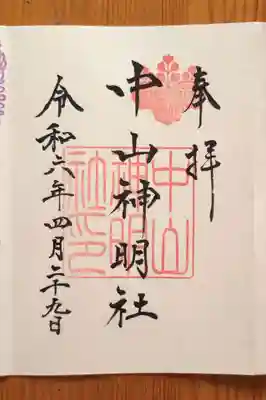 奉拝
中山神明社
令和六年四月二十九日
中山
神明
社印